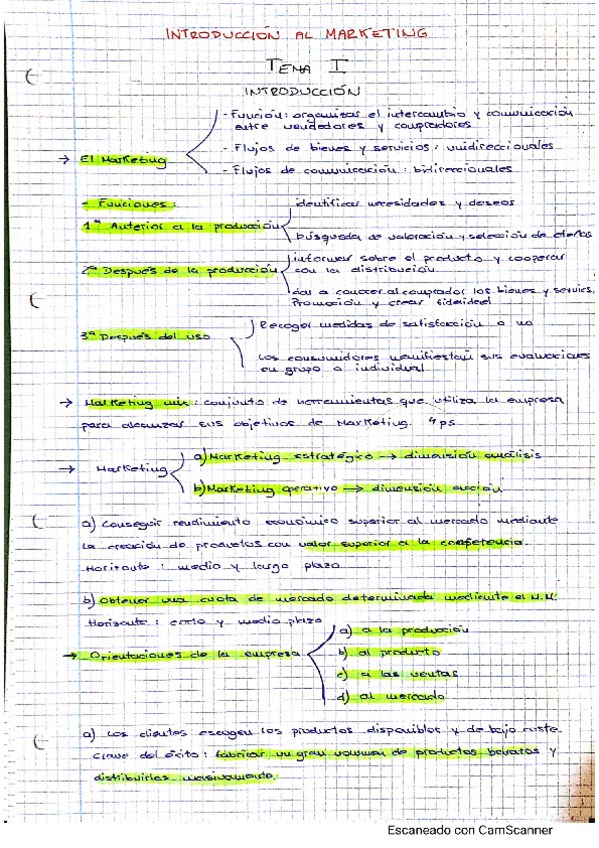 INTRODUCCIÓN AL MARKETING
TEMA I
INTRODUCCIÓN
- Función: organizar el intercambio y comunicación
entre vendedores y compradores
→ El Marketing
- Flujos de bienes y servicios: unidireccionales
- Flujos de comunicación: bidireccionales
- Funciones:
identificar necesidades y deseos
1ª Anterior a la producción
búsqueda de valoración y selección de ofertas
2ª Después de la producción
informar sobre el producto y cooperar
con la distribución
dar a conocer al comprador los bienes y servics.
Promoción y crear fidelidad
3ª Después del uso
Recoger medidas de satisfacción o no
Los consumidores manifiestan sus evaluaciones
en grupo o individual
→ Marketing mix: conjunto de herramientas que utiliza la empresa
para alcanzar sus objetivos de Marketing. 4 ps
→ Marketing
a) Marketing estratégico → dimensión análisis
b) Marketing operativo → dimensión acción
a) Conseguir rendimiento económico superior al mercado mediante
la creación de productos con valor superior a la competencia.
Horizonte: medio y largo plazo
b) Obtener una cuota de mercado determinada mediante el M.M.
Horizonte: corto y medio plazo
→ Orientaciones de la empresa
a) a la producción
b) al producto
c) a las ventas
d) al mercado
a) Los clientes escogen los productos disponibles y de bajo coste.
Clave del éxito: fabricar un gran volumen de productos baratos y
distribuirlos masivamente.
Escaneado con CamScanner